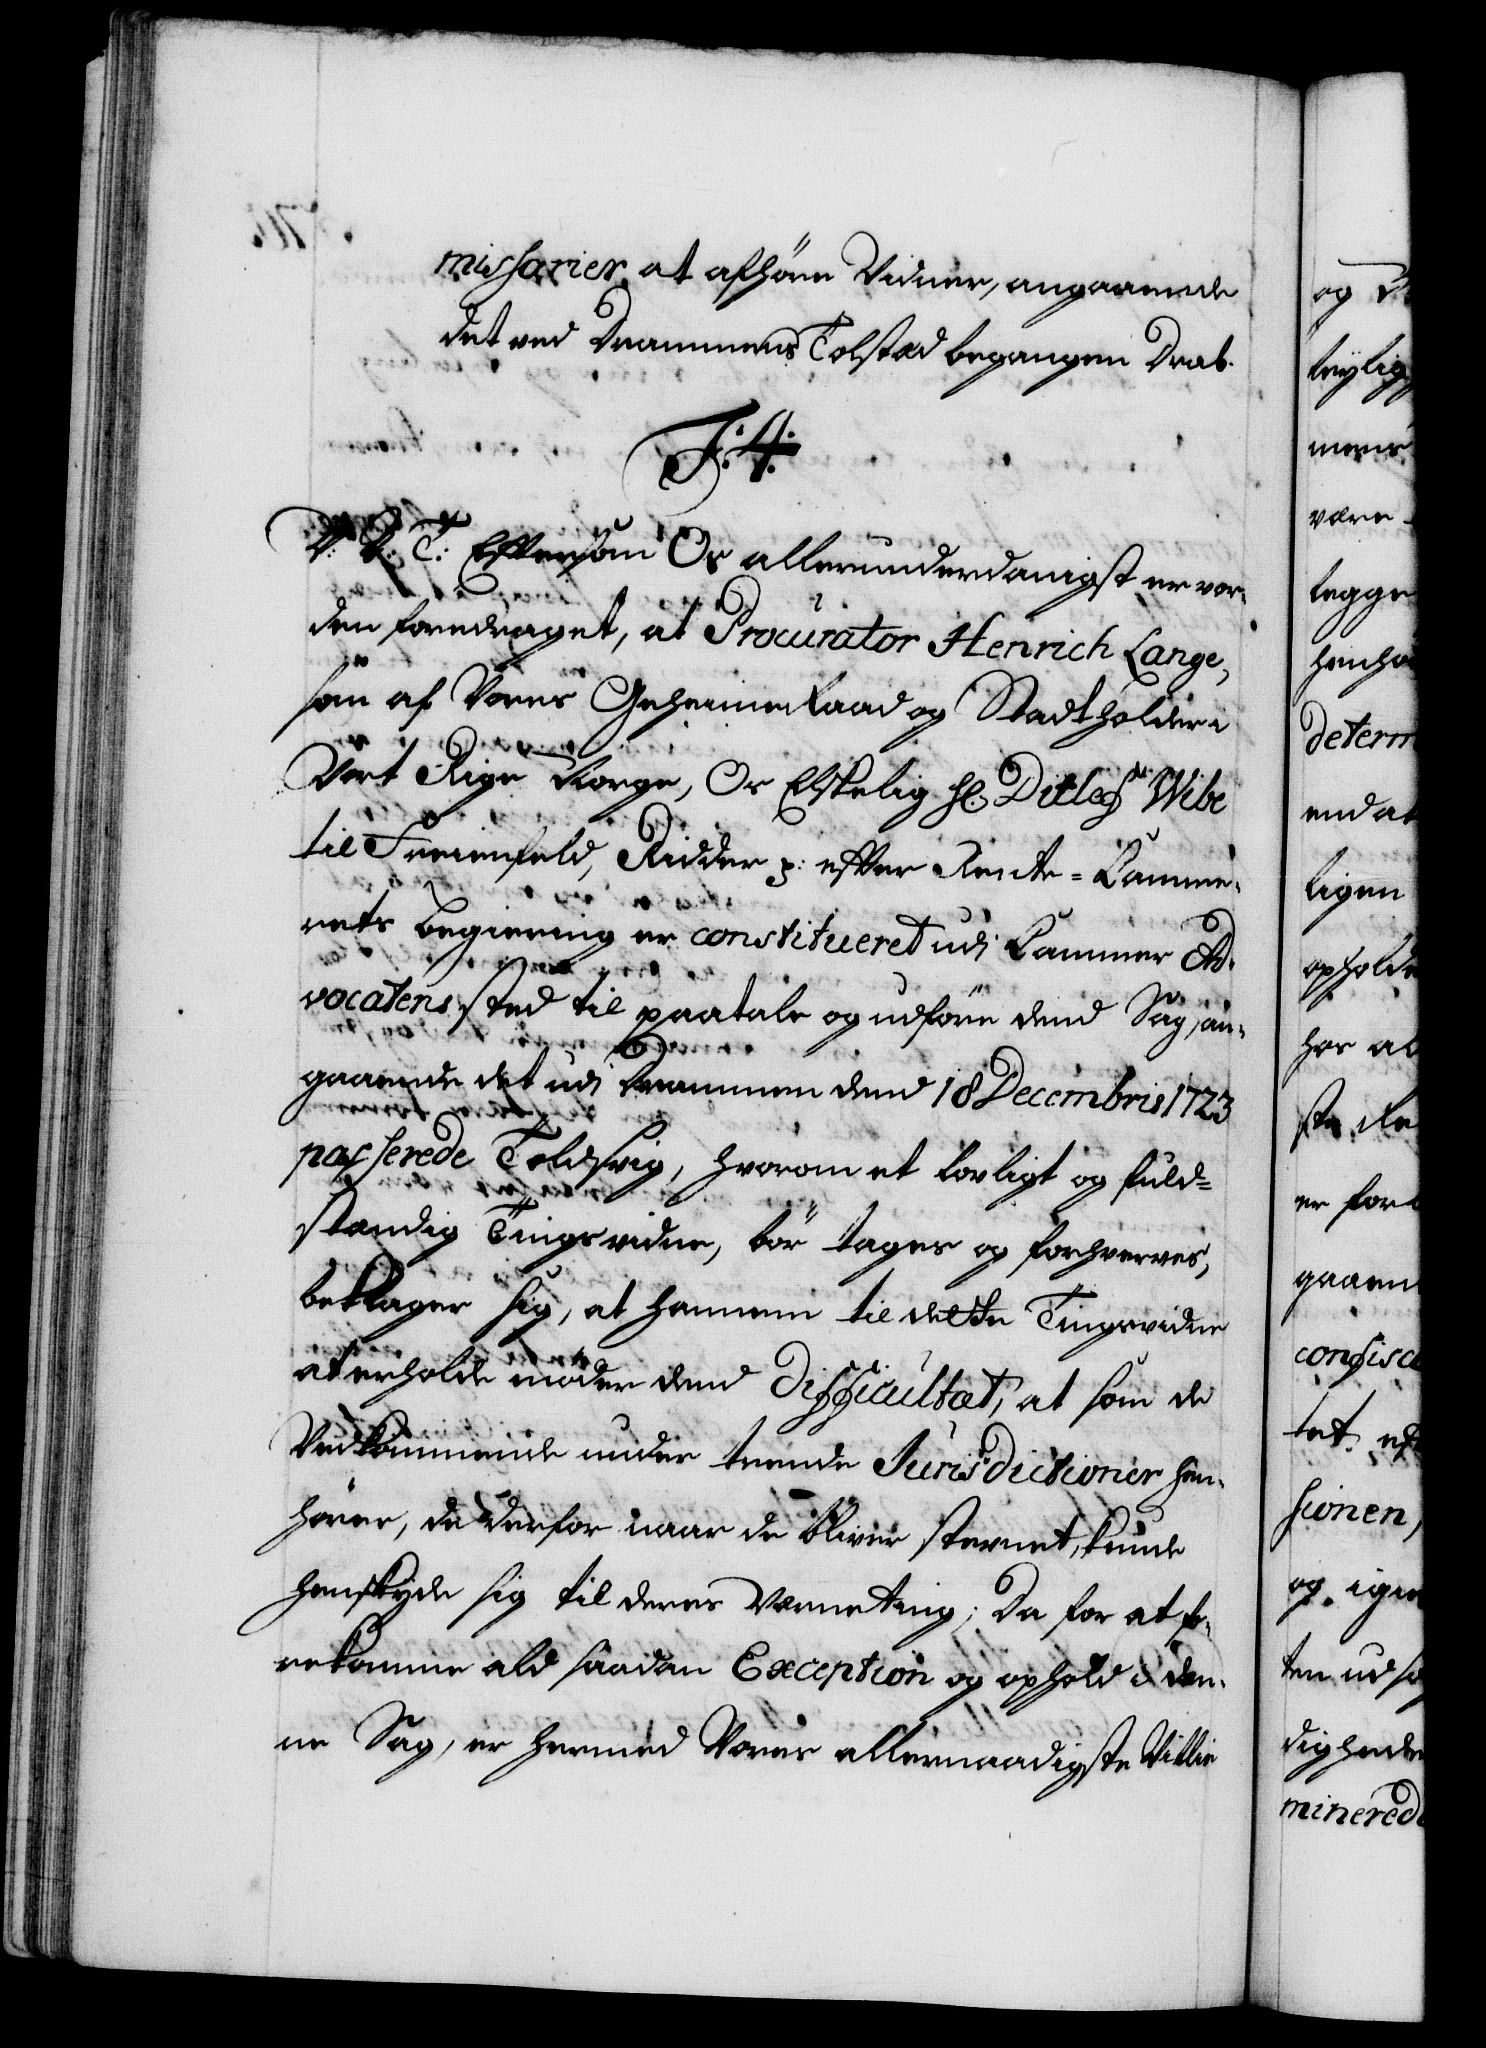 missarier, at afhöre Vidner, angaaende
det ved Drammens Tolsted begangen Drab.
F: 4:
V: G: T: Eftersom Os allerunderdanigst er vor-
den foredraget, at Procurator Henrich Lange,
som af Vores Geheime Raad og Stadtholder i
Vort Rige Norge, Os Elskelig Hr. Ditlef Wibe
til Freienfeld, Ridder p: efter Rente-Camme-
rets begiering er constitueret udi Cammer Ad-
vocatens sted til paatale og udföre dend Sag, an-
gaaende det udi Drammen dend 18 Decembris 1723
passerede Toldsvig, hvorom et lovligt og fuld-
stændig Tingsvidne, bör tages og forhverves,
beklager sig, at hannem til dette Tingsvidne
at erholde möder dend Difficultæt, at som de
Vedkommende under trende Jurisdictioner hen-
hörer, de derfor naar de bliver stevnet, kunde
henskyde sig til deres Værneting; Da for at fo-
rekomme ald saadan Exception og ophold i den-
ne Sag, er hermed Vores allernaadigste Villie
og
teylig
mens
være
legge
henhö
determ
end at
ligen
opholde
hos al
ste
er for
gaaen
confisce
tet
sionen,
og igien
ten uds
digheder
minerede